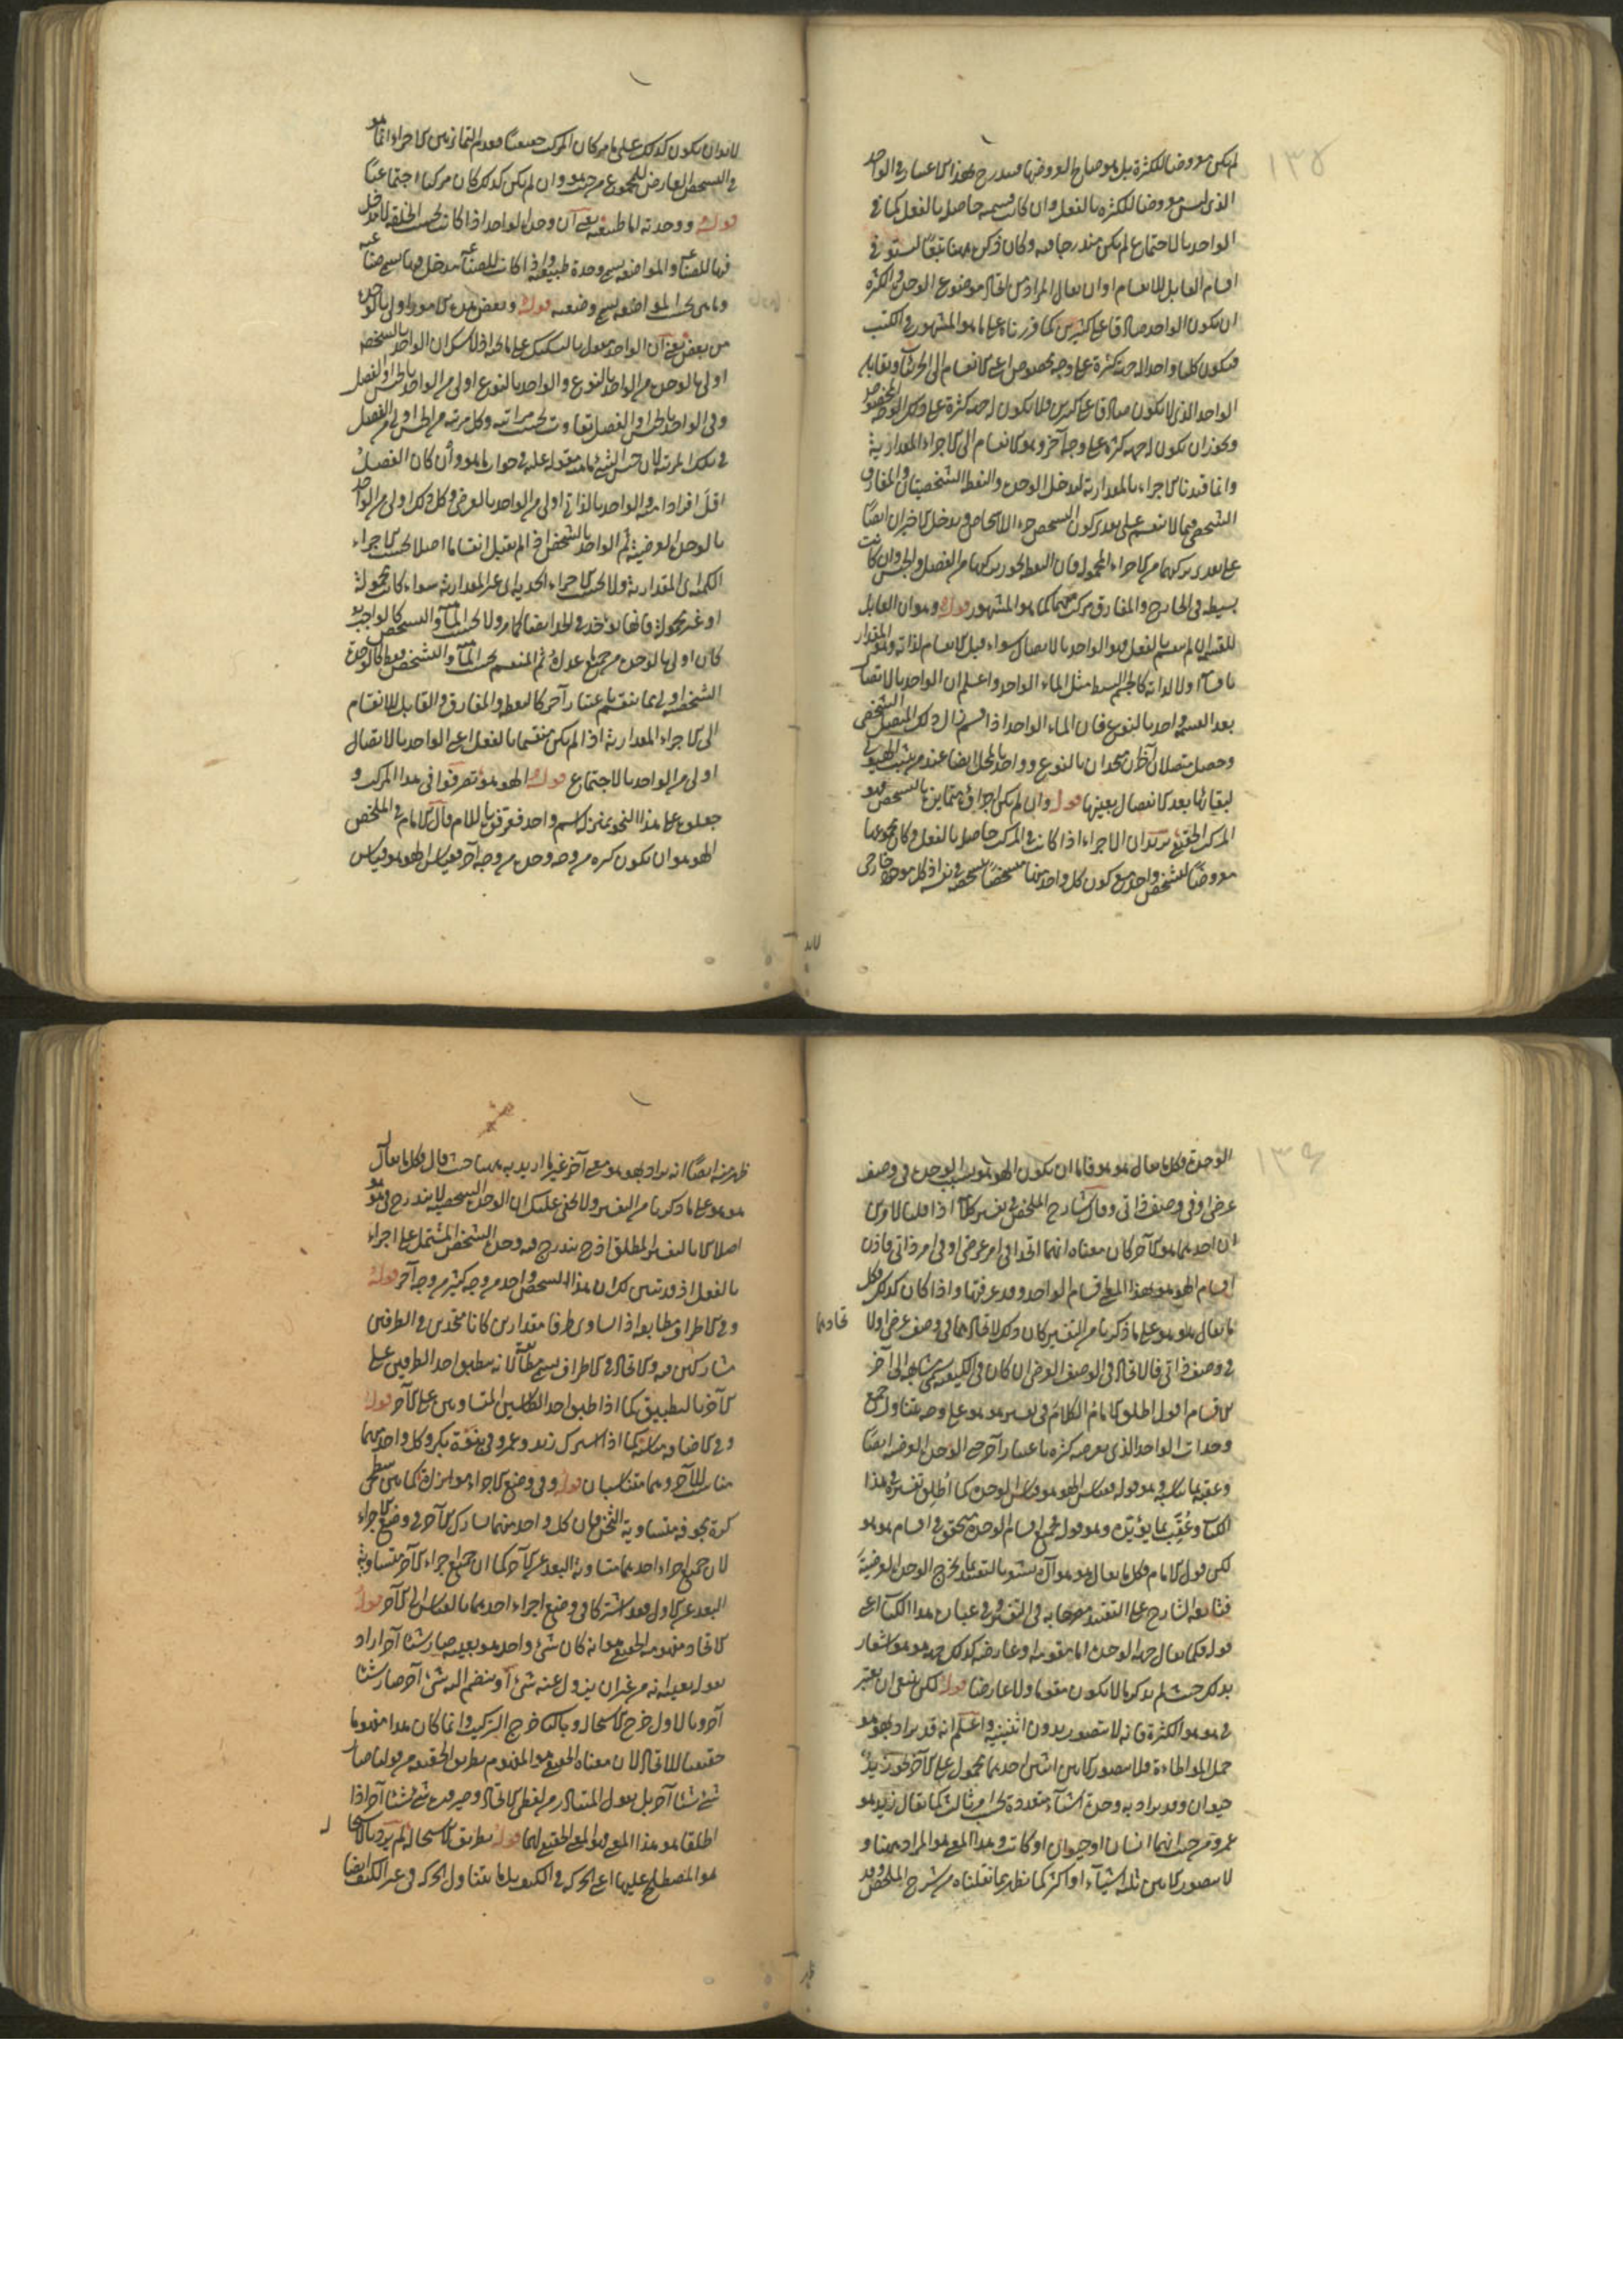 ١٣٥
لم يكن معروضا للكثرة بل هو صالح لعروضها فيندرج بهذا الاعتبار في الواحد
الذي ليس معروضا للكثرة بالفعل وان كانت قسمته حاصلة بالفعل كما في
الواحد بالاجتماع لم يكن مندرجا فيه وكان ذكره ههنا تبعا ليستوفي
اقسام القابل للانقسام او ان يقال المراد من اتحاد موضوع الوحدة والكثرة
ان يكون الواحد صادقا على كثيرين كما قررناه على ما هو المشهور في الكتب
فيكون كليا واحدا له جهة كثرة على وجه مخصوص اعني الانقسام الى الجزئيات ويقابله
الواحد الذي لا يكون صادقا على كثيرين فلا يكون له جهة كثرة على ذلك الوجه المخصوص
ويجوز ان يكون له جهة كثرة على وجه آخر وهو الانقسام الى الاجزاء المقدارية
وانما قيدنا الاجزاء بالمقدارية ليدخل الوحدة والنقطة الشخصيتان والمفارق
الشخصي فيما لا ينقسم على تقدير كون التشخص جزء الاشخاص ويدخل الاخيران ايضا
على تقدير تركبهما من الاجزاء المحمولة فان النقطة يجوز تركبها من الفصل والجنس وان كانت
بسيطة في الخارج والمفارق مركب منهما كما هو المشهور قوله وهو ان القابل
للقسمة ان لم ينقسم بالفعل فهو الواحد بالاتصال سواء قبل الانقسام لذاته وهو المقدار
او لا لذاته كالجسم البسيط مثل الماء الواحد واعلم ان الواحد بالاتصال
بعد القسمة واحد بالنوع فان الماء الواحد اذا قسم زال ذلك المتصل الشخصي
وحصل متصلان آخران متحدان بالنوع وواحد بالمحل ايضا عند من يثبت الهيولى
لبقائها بعد الانفصال بعينها قوله وان لم يكن اجزاؤه متمايزة بالتشخص فهو
المركب الحقيقي يريد ان الاجزاء اذا كانت في المركب حاصلة بالفعل وكان مجموعها
معروضا لتشخص واحد مع كون كل واحد منها متشخصا بتشخصه في نفسه اذ كل موجود خارجي
لابد
لابد ان يكون كذلك على ما مر كان المركب حقيقيا فعدم التمايز بين الاجزاء انما هو
في التشخص العارض للمجموع من حيث هو وان لم يكن كذلك كان مركبا اجتماعيا
قوله ووحدته اما طبيعية يعني ان وحدة الواحد اذا كانت بحسب الخلقة لا مدخل
فيها للصناعة والمواضعة يسمى وحدة طبيعية واذا كانت للصناعة مدخل فيها يسمى صناعية
وما هي بحسب المواضعة يسمى وضعية قوله وبعض هذه الامور اولى بالوحدة
من بعض يعني ان الواحد مقول بالتشكيك على ما تحته اذ لا شك ان الواحد بالشخص
اولى بالوحدة من الواحد بالنوع والواحد بالنوع اولى من الواحد بالجنس او الفصل
وفي الواحد بالجنس والفصل تفاوت بحسب مراتبه وكل مرتبة من الجنس اولى من الفصل
في تلك المرتبة لان جنس الشيء ماهية مقولة عليه في جواب ما هو وان كان الفصل
اقل افرادا منه والواحد بالذاتي اولى من الواحد بالعرض وكل ذلك اولى من الواحد
بالوحدة العرضية ثم الواحد بالشخص اذا لم يقبل انقساما اصلا لا بحسب الاجزاء
الكمية اي المقدارية ولا بحسب الاجزاء الحدية اي غير المقدارية سواء كانت محمولة
او غير محمولة فانها تؤخذ في الحد ايضا كما مر ولا بحسب الماهية والتشخص كالواجب
كان اولى بالوحدة من جميع ما عداه ثم المنقسم بحسب الماهية والتشخص فقط كالوحدة
الشخصية اولى مما ينقسم باعتبار آخر كالنقطة والمفارق والقابل للانقسام
الى الاجزاء المقدارية اذا لم يكن منقسما بالفعل اعني الواحد بالاتصال
اولى من الواحد بالاجتماع قوله الهو هو تصرفوا في هذا المركب و
جعلوه على هذا النحو بمنزلة اسم واحد فعرفوه باللام قال الامام في الملخص
الهو هو ان يكون كثرة من وجه وحدة من وجه آخر فقياس الهو هو قياس
١٣٦
الوحدة فكل ما يقال هو هو فاما ان يكون الهو هو بسبب الوحدة في وصف
عرضي او في وصف ذاتي وقال شارح الملخص في تفسير كلامه اذا قلنا لامرين
ان احدهما هو الآخر كان معناه انهما اتحدا في امر عرضي او في امر ذاتي فاذن
اقسام الهو هو بهذا المعنى اقسام الواحد وقد عرفتها واذا كان كذلك فكل
ما يقال هو هو على ما ذكرنا من التفسير كان ذلك لاتحادهما في وصف عرضي او لاتحادهما
في وصف ذاتي فالاتحاد في الوصف العرضي ان كان في الكيفية سمي مشابهة الى آخر
الاقسام اقول اطلق الامام الكلام في تفسير هو هو على وجه يتناول جميع
وحدات الواحد الذي يعرضه كثرة باعتبار آخر حتى الوحدة العرضية ايضا
وعقبه بما يناسبه وهو قوله فقياس الهو هو قياس الوحدة كما اطلق تفسيره في هذا
الكتاب وعقب بما يؤيده وهو قوله فجميع اقسام الوحدة متحقق في اقسام هو هو
لكن قول الامام فكل ما يقال هو هو الى آخره يشعر بالتقييد بما يخرج الوحدة العرضية
فتابعه الشارح على التقييد مصرحا به في التفسير وفي عبارة هذا الكتاب اعني
قوله فكما يقال جهة الوحدة اما مقومة او عارضة كذلك جهة هو هو اشعار
بذلك حيث لم يذكر ما لا يكون مقوما ولا عارضا قوله لكن ينبغي ان يعتبر
في هو هو الكثرة فانه لا يتصور بدون اثنينية واعلم انه قد يراد بهو هو
حمل المواطاة فلا يتصور الا بين اثنين احدهما محمول على الآخر نحو زيد
حيوان وقد يراد به وحدة اشياء متعددة بحسب امر ثالث كما يقال زيد هو
عمرو من حيث انهما انسان او حيوان او كاتب وهذا المعنى هو المراد ههنا و
لا يتصور الا بين ثلثة اشياء او اكثر كما يظهر مما نقلناه من شرح الملخص وقد
ظهر
ظهر منه ايضا انه يراد بهو هو معنى آخر غير ما اريد به ههنا حيث قال فكل ما يقال
هو هو على ما ذكرنا من التفسير ولا يخفى عليك ان الوحدة الشخصية لا يندرج في هو هو
اصلا الا بالتفسير المطلق اذ ح يندرج فيه وحدة الشخص المشتمل على اجزاء
بالفعل اذ قد تبين لك ان هذا الشخص واحد من وجه كثير من وجه آخر قوله
وفي الاطراف مطابقة اذا تساوى طرفا مقدارين كانا متحدين في الطرفين
متشاركين فيه والاتحاد في الاطراف يسمى مطابقة لانه ينطبق احد الطرفين على
الآخر بالتطبيق كما اذا طبق احد الطاسين المتساويين على الآخر قوله
وفي الاضافة مناسبة كما اذا اشترك زيد وعمرو في بنوة بكر وكل واحد منهما
مناسب للآخر وهما متناسبان قوله وفي وضع الاجزاء موازاة كما بين سطحي
كرة مجوفة متساوية الثخن فان كل واحد منهما يشارك الآخر في وضع الاجزاء
لان جميع اجزاء احدهما متساوية البعد عن الآخر كما ان جميع اجزاء الآخر متساوية
البعد عن الاول فقد اشتركا في وضع اجزاء احدهما بالقياس الى الآخر قوله
الاتحاد مفهومه الحقيقي هو انه كان شيء واحد هو بعينه صار شيئا آخر اراد
بقوله بعينه انه من غير ان يزول عنه شيء او ينضم اليه شيء آخر صار شيئا
آخر وبالاول خرج الاستحالة وبالثاني خرج التركيب وانما كان هذا مفهوما
حقيقيا للاتحاد لان معناه الحقيقي هو المفهوم بطريق الحقيقة من قولنا صار
شيء شيئا آخر بل نقول المتبادر من لفظي الاتحاد وصيرورة شيء شيئا آخر اذا
اطلقا هو هذا المعنى فهو المعنى الحقيقي لهما قوله بطريق الاستحالة لم يرد بالاستحالة
هو المصطلح عليها اعني الحركة في الكيف بل ما يتناول الحركة في غير الكيف ايضا